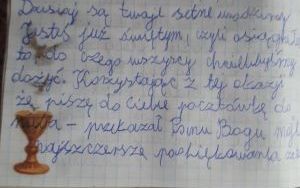 Dzisiaj są twoje setne urodziny
Jesteś już świętym, czyli osiągnąłeś
to do czego wszyscy chcielibyśmy
dożyć. Korzystając z tej okazji
że piszę do Ciebie pocztówkę do
nieba – przekazał Panu Bogu moje
najszczersze podziękowania za